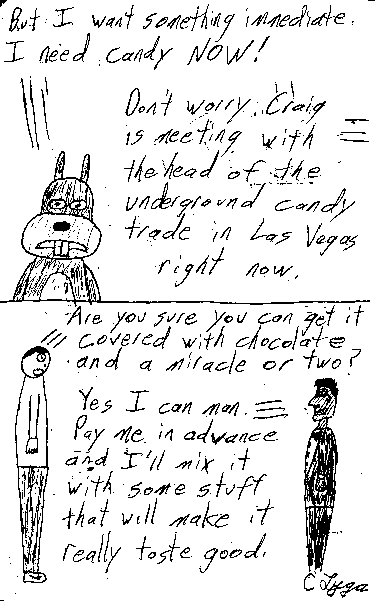 But I want something immediate.
I need candy NOW!
Don't worry. Craig
is meeting with
the head of the
underground candy
trade in Las Vegas
right now.
Are you sure you can get it
covered with chocolate
and a miracle or two?
Yes I can man.
Pay me in advance
and I'll mix it
with some stuff
that will make it
really taste good.
C Lyga